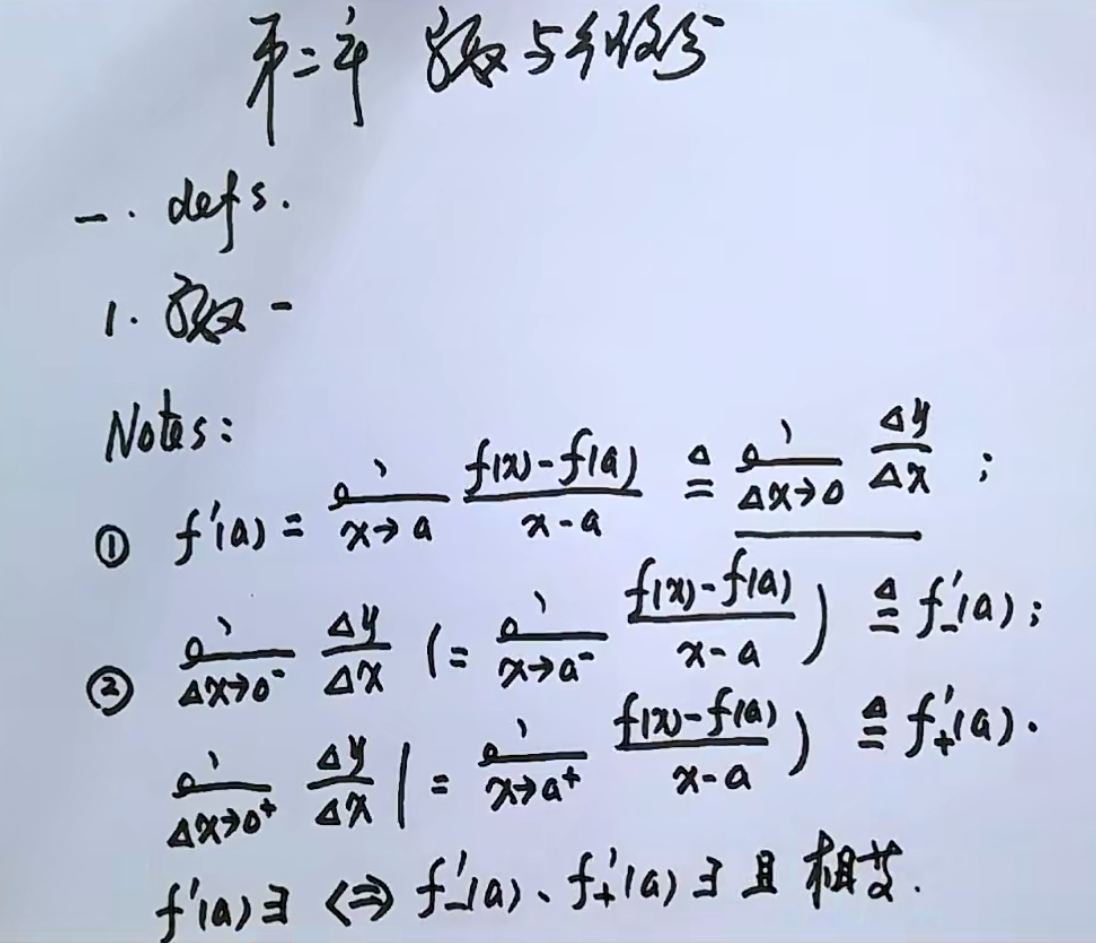 第二章 导数与微分
一. defs.
1. 导数 -
Notes:
① f'(a) = lim_{x→a} (f(x)-f(a))/(x-a) ≜ lim_{Δx→0} Δy/Δx ;
② lim_{Δx→0⁻} Δy/Δx (= lim_{x→a⁻} (f(x)-f(a))/(x-a)) ≜ f'₋(a);
lim_{Δx→0⁺} Δy/Δx (= lim_{x→a⁺} (f(x)-f(a))/(x-a)) ≜ f'₊(a).
f'(a)∃ ⇔ f'₋(a)、f'₊(a)∃且相等.